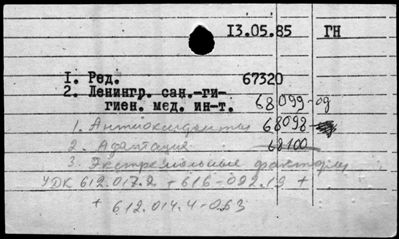 13.05.85 ГН
I. Ред. 67320
2. Ленингр. сан.-ги-
гиен. мед. ин-т. 68099-од
1. Антиоксиданты 68098-
2. Адаптация 68100
3. Экстремальные факторы
УДК 612.017.2 + 616-092.19 +
+ 612.014.4-063